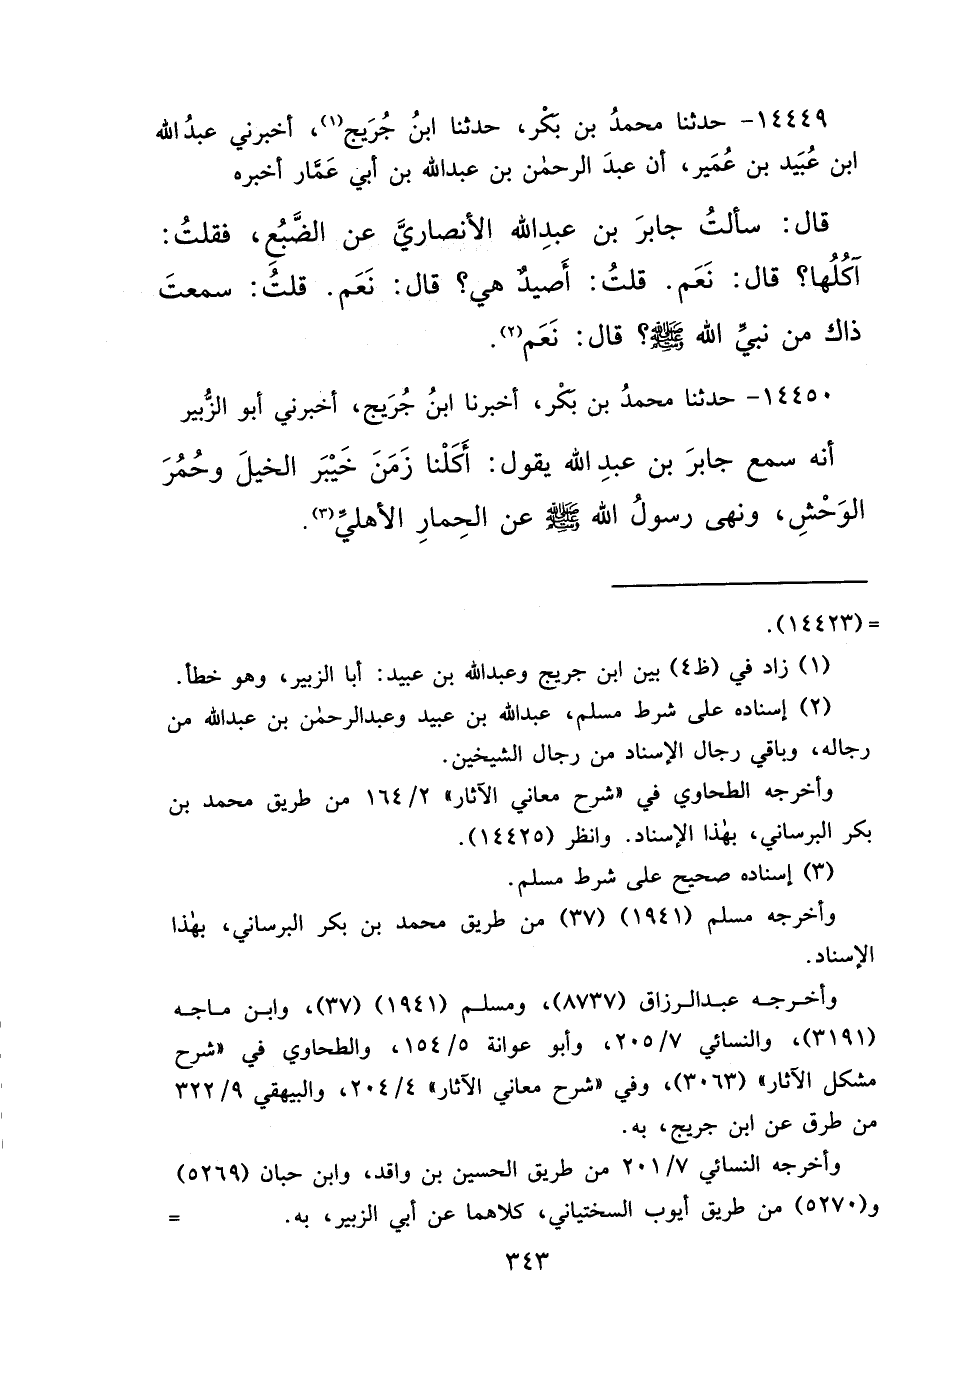 ١٤٤٤٩- حدثنا محمدُ بن بَكْر، حدثنا ابنُ جُرَيج(١)، أخبرني عبدُ الله
ابن عُبَيد بن عُمَير، أن عبدَ الرحمٰن بن عبدالله بن أبي عَمَّار أخبره
قال: سألتُ جابرَ بن عبدِ الله الأنصاريَّ عن الضَّبُعِ، فقلتُ:
آكُلُها؟ قال: نَعَم. قلتُ: أَصيدٌ هي؟ قال: نَعَم. قلتُ: سمعتَ
ذاك من نبيِّ الله ﷺ؟ قال: نَعَم(٢).
١٤٤٥٠- حدثنا محمدُ بن بَكْر، أخبرنا ابنُ جُرَيج، أخبرني أبو الزُّبير
أنه سمع جابرَ بن عبدِ الله يقول: أَكَلْنا زَمَنَ خَيْبَر الخيلَ وحُمُرَ
الوَحْشِ، ونهى رسولُ الله ﷺ عن الحِمارِ الأهليِّ(٣).
= (١٤٤٢٣).
(١) زاد في (ظ٤) بين ابن جريج وعبدالله بن عبيد: أبا الزبير، وهو خطأ.
(٢) إسناده على شرط مسلم، عبدالله بن عبيد وعبدالرحمٰن بن عبدالله من
رجاله، وباقي رجال الإسناد من رجال الشيخين.
وأخرجه الطحاوي في «شرح معاني الآثار» ١٦٤/٢ من طريق محمد بن
بكر البرساني، بهٰذا الإسناد. وانظر (١٤٤٢٥).
(٣) إسناده صحيح على شرط مسلم.
وأخرجه مسلم (١٩٤١) (٣٧) من طريق محمد بن بكر البرساني، بهٰذا
الإسناد.
وأخرجه عبدالرزاق (٨٧٣٧)، ومسلم (١٩٤١) (٣٧)، وابن ماجه
(٣١٩١)، والنسائي ٢٠٥/٧، وأبو عوانة ١٥٤/٥، والطحاوي في «شرح
مشكل الآثار» (٣٠٦٣)، وفي «شرح معاني الآثار» ٢٠٤/٤، والبيهقي ٣٢٢/٩
من طرق عن ابن جريج، به.
وأخرجه النسائي ٢٠١/٧ من طريق الحسين بن واقد، وابن حبان (٥٢٦٩)
و(٥٢٧٠) من طريق أيوب السختياني، كلاهما عن أبي الزبير، به. =
٣٤٣